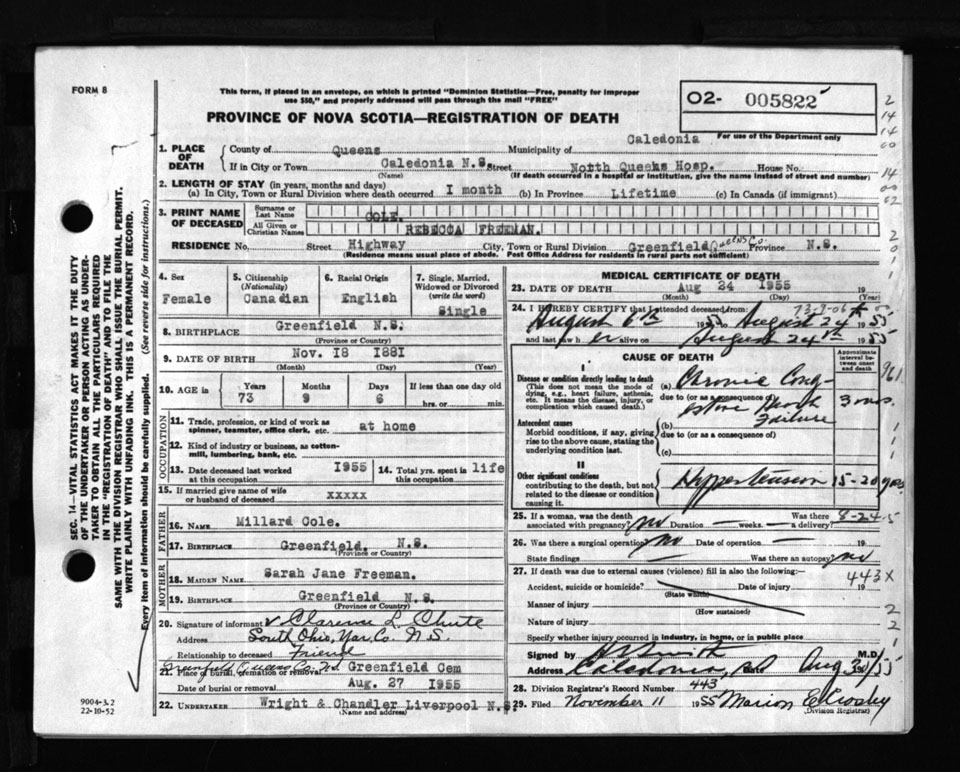 FORM 8
This form, if placed in an envelope, on which is printed "Dominion Statistics—Free, penalty for improper
use $50," and properly addressed will pass through the mail "FREE"
PROVINCE OF NOVA SCOTIA—REGISTRATION OF DEATH
O2- 005822
For use of the Department only
1. PLACE OF DEATH
County of Queens Municipality of Caledonia
If in City or Town Caledonia N.S. Street North Queens Hosp. House No.
(Name) (If death occurred in a hospital or institution, give the name instead of street and number)
2. LENGTH OF STAY (in years, months and days)
(a) In City, Town or Rural Division where death occurred I month (b) In Province Lifetime (c) In Canada (if immigrant)
3. PRINT NAME OF DECEASED
Surname or Last Name COLE.
All Given or Christian Names REBECCA FREEMAN.
RESIDENCE No. Street Highway City, Town or Rural Division Greenfield Queens Co. Province N.S.
(Residence means usual place of abode. Post Office Address for residents in rural parts not sufficient)
4. Sex Female
5. Citizenship (Nationality) Canadian
6. Racial Origin English
7. Single, Married, Widowed or Divorced (write the word) Single
8. BIRTHPLACE Greenfield N.S.
(Province or Country)
9. DATE OF BIRTH Nov. I8 I88I
(Month) (Day) (Year)
10. AGE in Years 73 Months 9 Days 6 If less than one day old hrs. or min.
OCCUPATION
11. Trade, profession, or kind of work as spinner, teamster, office clerk, etc. at home
12. Kind of industry or business, as cotton-mill, lumbering, bank, etc.
13. Date deceased last worked at this occupation I955
14. Total yrs. spent in this occupation life
15. If married give name of wife or husband of deceased xxxxx
FATHER
16. NAME Millard Cole.
17. BIRTHPLACE Greenfield. N.S.
(Province or Country)
MOTHER
18. MAIDEN NAME Sarah Jane Freeman.
19. BIRTHPLACE Greenfield N.S.
(Province or Country)
20. Signature of informant Clarence L. Chute
Address South Ohio, Yar. Co. N.S.
Relationship to deceased Friend
Greenfield Queens Co. N.S.
21. Place of burial, cremation or removal Greenfield Cem
Date of burial or removal Aug. 27 I955
22. UNDERTAKER Wright & Chandler Liverpool N.S.
(Name and address)
MEDICAL CERTIFICATE OF DEATH
23. DATE OF DEATH Aug 24 1955 19
(Month) (Day) (Year)
24. I HEREBY CERTIFY that I attended deceased from: 73-9-06
August 6th 1955 to August 24th 1955
and last saw her alive on August 24th 1955
CAUSE OF DEATH
Approximate interval between onset and death
I
Disease or condition directly leading to death
(This does not mean the mode of dying, e.g., heart failure, asthenia, etc. It means the disease, injury, or complication which caused death.)
(a) Chronic Cong-
due to (or as a consequence of)
estive Heart Failure 3 mos.
Antecedent causes
Morbid conditions, if any, giving rise to the above cause, stating the underlying condition last.
(b)
due to (or as a consequence of)
(c)
II
Other significant conditions
contributing to the death, but not related to the disease or condition causing it.
Hypertension 15-20 yrs
25. If a woman, was the death associated with pregnancy? No Duration — weeks. Was there a delivery? —
8-24-5
26. Was there a surgical operation? No Date of operation — 19
State findings Was there an autopsy? No
27. If death was due to external causes (violence) fill in also the following:—
443X
Accident, suicide or homicide? Date of injury 19
(State which)
Manner of injury
(How sustained)
Nature of injury
Specify whether injury occurred in industry, in home, or in public place
Signed by Smith M.D.
Address Caledonia, Aug 30/55
28. Division Registrar's Record Number 443
29. Filed November 11 1955 Marion E Crosby
(Division Registrar)
SEC. 14—VITAL STATISTICS ACT MAKES IT THE DUTY
OF THE UNDERTAKER OR PERSON ACTING AS UNDER-
TAKER TO OBTAIN ALL THE PARTICULARS REQUIRED
IN THE "REGISTRATION OF DEATH" AND TO FILE THE
SAME WITH THE DIVISION REGISTRAR WHO SHALL ISSUE THE BURIAL PERMIT.
WRITE PLAINLY WITH UNFADING INK. THIS IS A PERMANENT RECORD.
Every item of information should be carefully supplied. (See reverse side for instructions.)
9004-3.2
22-10-52
2
14
14
00
14
00
02
2
0
961
2
2